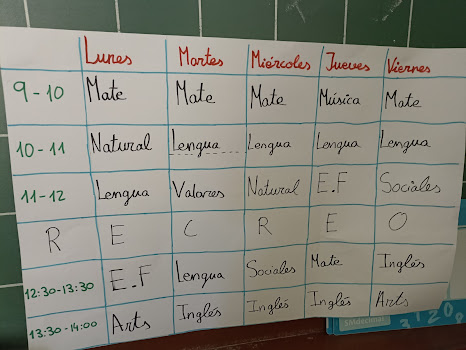 Lunes Martes Miércoles Jueves Viernes
9-10 Mate Mate Mate Música Mate
10-11 Natural Lengua Lengua Lengua Lengua
11-12 Lengua Valores Natural E.F Sociales
R E C R E O
12:30-13:30 E.F Lengua Sociales Mate Inglés
13:30-14:00 Arts Inglés Inglés Inglés Arts